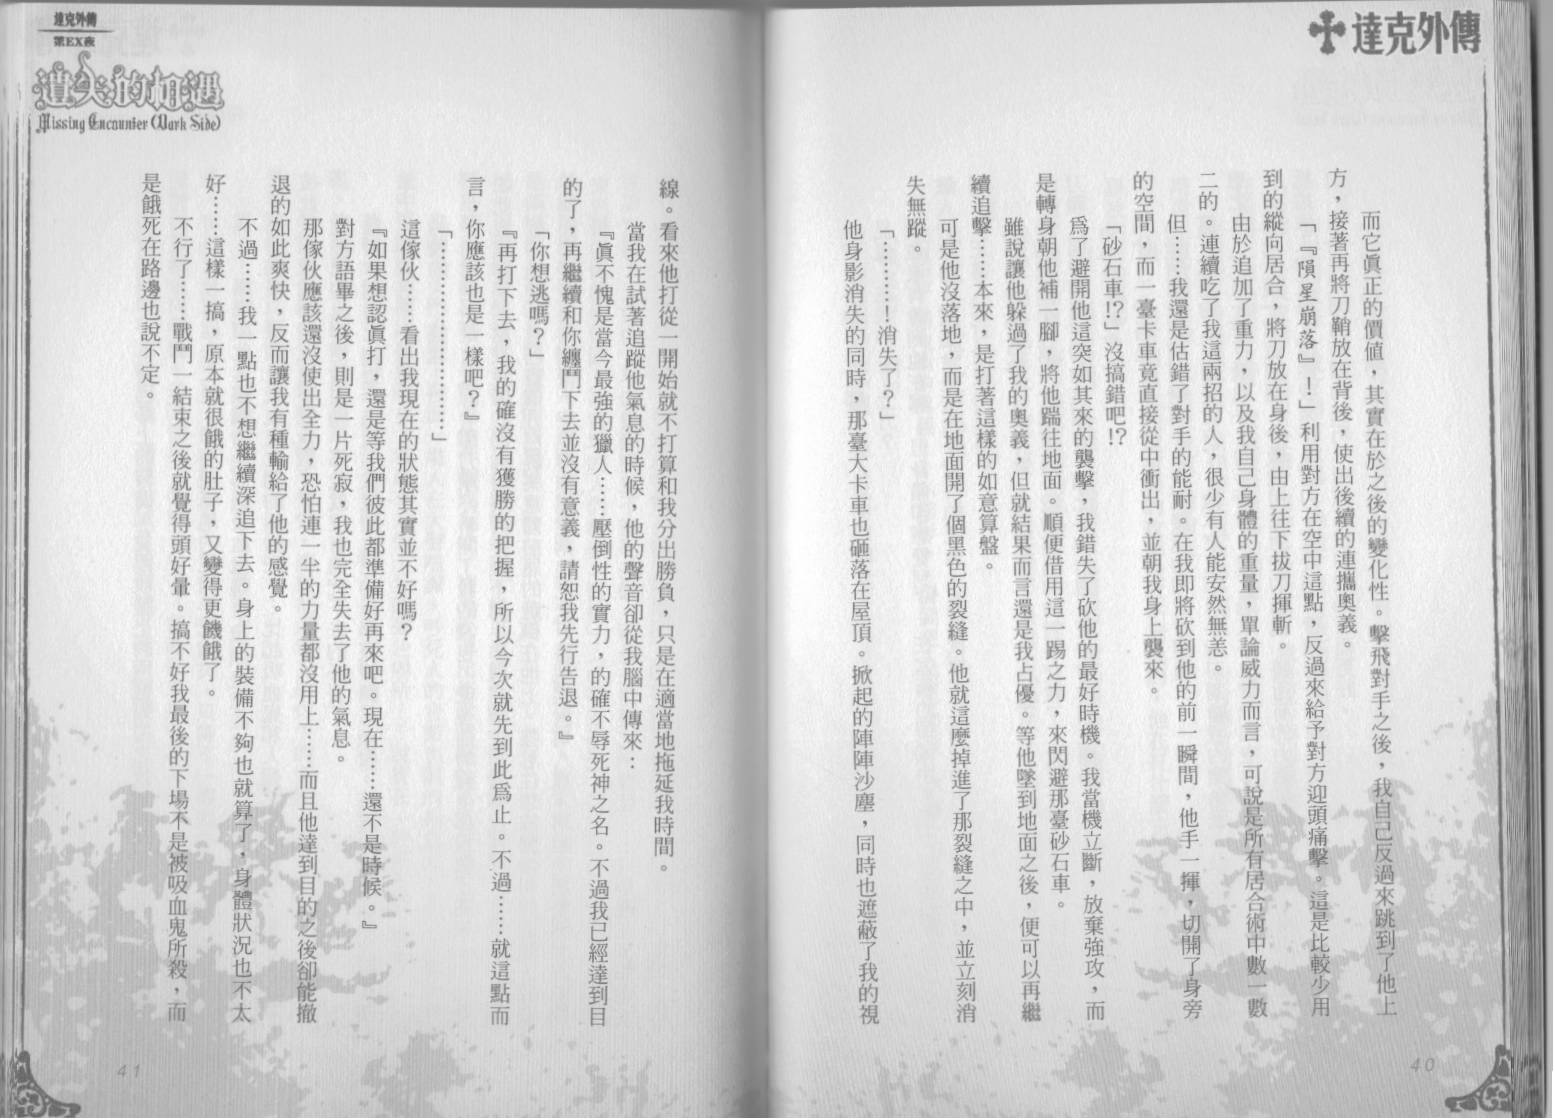 達克外傳
而它眞正的價値，其實在於之後的變化性。擊飛對手之後，我自己反過來跳到了他上
方，接著再將刀鞘放在背後，使出後續的連攜奧義。
「『隕星崩落』！」利用對方在空中這點，反過來給予對方迎頭痛擊。這是比較少用
到的縱向居合，將刀放在身後，由上往下拔刀揮斬。
由於追加了重力，以及我自己身體的重量，單論威力而言，可說是所有居合術中數一數
二的。連續吃了我這兩招的人，很少有人能安然無恙。
但……我還是估錯了對手的能耐。在我即將砍到他的前一瞬間，他手一揮，切開了身旁
的空間，而一臺卡車竟直接從中衝出，並朝我身上襲來。
「砂石車!?」沒搞錯吧!?
爲了避開他這突如其來的襲擊，我錯失了砍他的最好時機。我當機立斷，放棄強攻，而
是轉身朝他補一腳，將他踹往地面。順便借用這一踢之力，來閃避那臺砂石車。
雖說讓他躲過了我的奧義，但就結果而言還是我占優。等他墜到地面之後，便可以再繼
續追擊……本來，是打著這樣的如意算盤。
可是他沒落地，而是在地面開了個黑色的裂縫。他就這麼掉進了那裂縫之中，並立刻消
失無蹤。
「………！消失了？」
他身影消失的同時，那臺大卡車也砸落在屋頂。掀起的陣陣沙塵，同時也遮蔽了我的視
40
達克外傳
第EX夜
遺失的相遇
Missing Encounter (Dark Side)
線。看來他打從一開始就不打算和我分出勝負，只是在適當地拖延我時間。
當我在試著追蹤他氣息的時候，他的聲音卻從我腦中傳來：
『眞不愧是當今最強的獵人……壓倒性的實力，的確不辱死神之名。不過我已經達到目
的了，再繼續和你纏鬥下去並沒有意義，請恕我先行告退。』
「你想逃嗎？」
『再打下去，我的確沒有獲勝的把握，所以今次就先到此爲止。不過……就這點而
言，你應該也是一樣吧？』
「……………………」
這傢伙……看出我現在的狀態其實並不好嗎？
『如果想認眞打，還是等我們彼此都準備好再來吧。現在……還不是時候。』
對方語畢之後，則是一片死寂，我也完全失去了他的氣息。
那傢伙應該還沒使出全力，恐怕連一半的力量都沒用上……而且他達到目的之後卻能撤
退的如此爽快，反而讓我有種輸給了他的感覺。
不過……我一點也不想繼續深追下去。身上的裝備不夠也就算了，身體狀況也不太
好……這樣一搞，原本就很餓的肚子，又變得更饑餓了。
不行了……戰鬥一結束之後就覺得頭好暈。搞不好我最後的下場不是被吸血鬼所殺，而
是餓死在路邊也說不定。
41